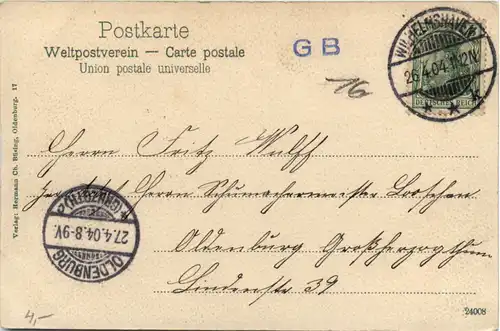 Postkarte
Weltpostverein — Carte postale
Union postale universelle
GB
16
WILHELMSHAVEN
26.4.04.11-12V.
DEUTSCHES REICH
Herrn Fritz Wulff
Herrn Schuhmachermeister Looschen
Oldenburg Großherzogthum
Lindenstr 39
OLDENBURG
27.4.04.8-9V.
(GRHZGTH.)
Verlag: Hermann Ch. Büsing, Oldenburg. 17
4,-
24008